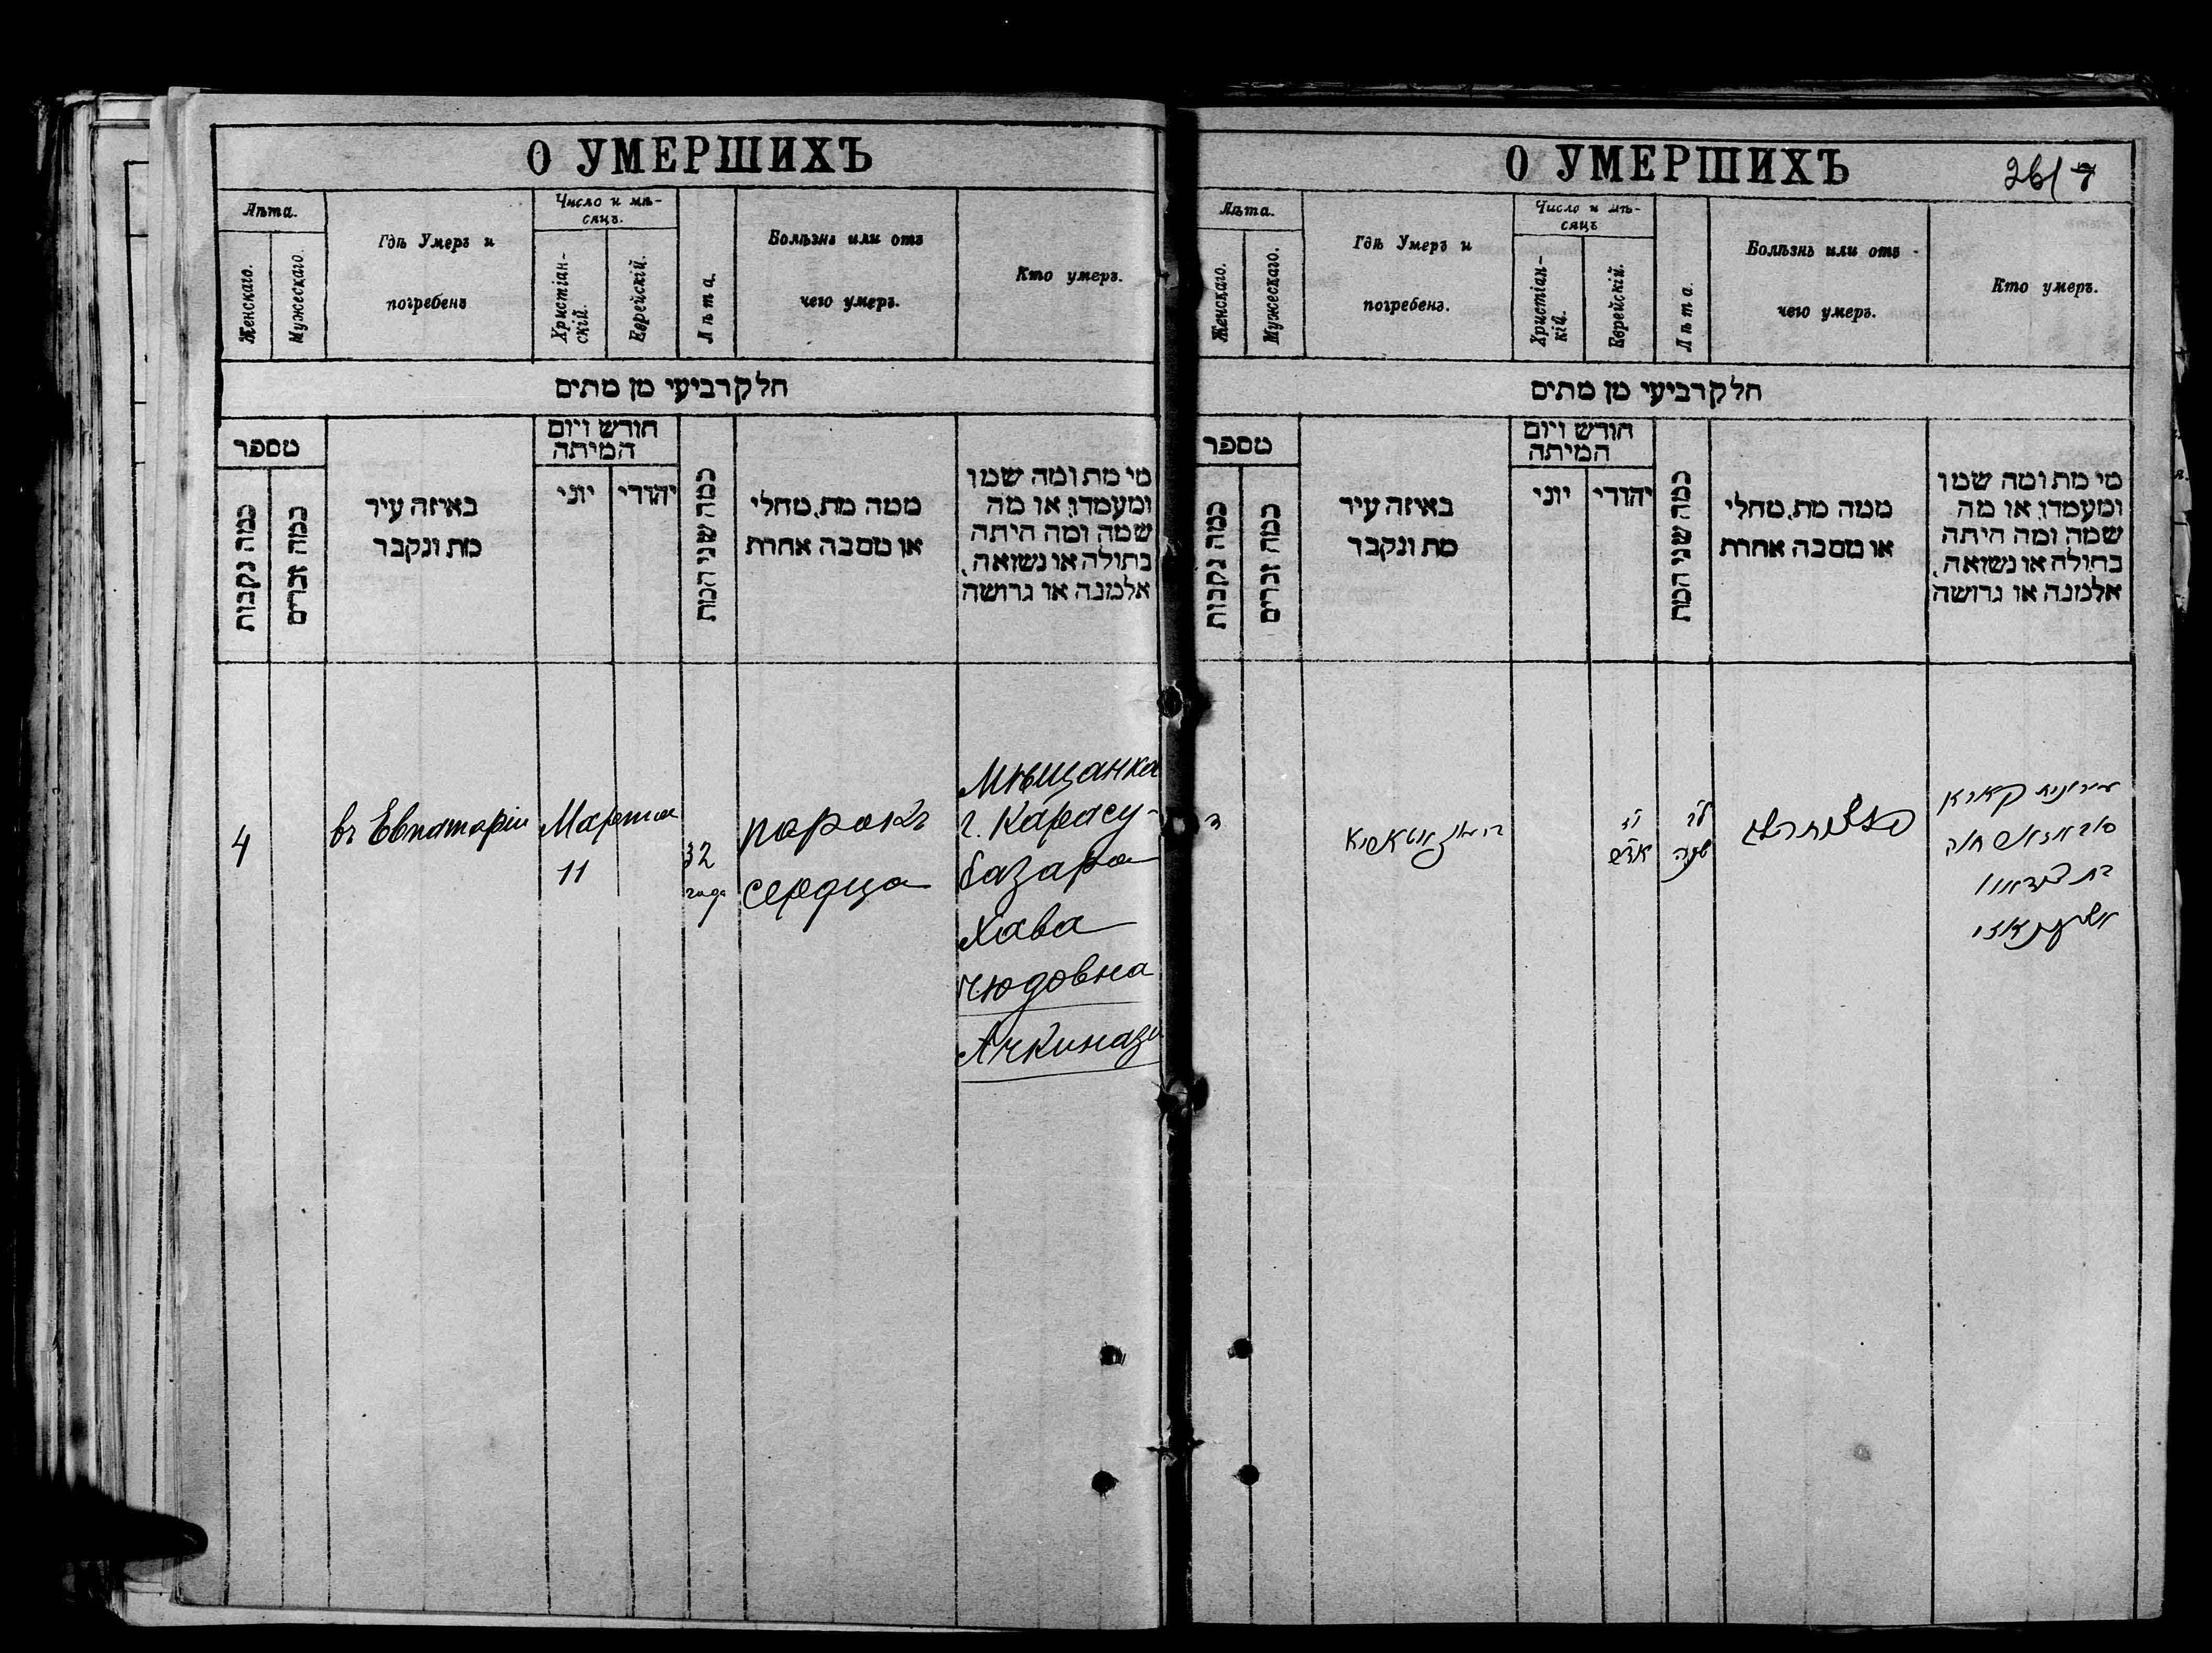 О УМЕРШИХЪ
Лѣта.
Женскаго.
Мужескаго.
Гдѣ Умеръ и
погребенъ
Число и мѣ-
сяцъ.
Христіан-
скій.
Еврейскій.
Лѣта.
Болѣзнь или отъ
чего умеръ.
Кто умеръ.
חלק רביעי מן מתים
מספר
כמה נקבות
כמה זכרים
באיזה עיר
מת ונקבר
חודש ויום
המיתה
יוני
יהודי
כמה שני המת
ממה מת, מחלי
או מסבה אחרת
מי מת ומה שמו
ומעמדו, או מה
שמה ומה היתה
בתולה או נשואה,
אלמנה או גרושה
4
въ Евпаторіи
Марта
11
32
года
порокъ
сердца
Мѣщанка
г. Карасу-
базара
Хава
Юдовна
О УМЕРШИХЪ
Лѣта.
Женскаго.
Мужескаго.
Гдѣ Умеръ и
погребенъ.
Число и мѣ-
сяцъ
Христіан-
кій.
Еврейскій.
Лѣта.
Болѣзнь или отъ
чего умеръ.
Кто умеръ.
חלק רביעי מן מתים
מספר
כמה נקבות
כמה זכרים
באיזה עיר
מת ונקבר
חודש ויום
המיתה
יוני
יהודי
כמה שני המת
ממה מת, מחלי
או מסבה אחרת
מי מת ומה שמו
ומעמדו, או מה
שמה ומה היתה
בתולה או נשואה,
אלמנה או גרושה